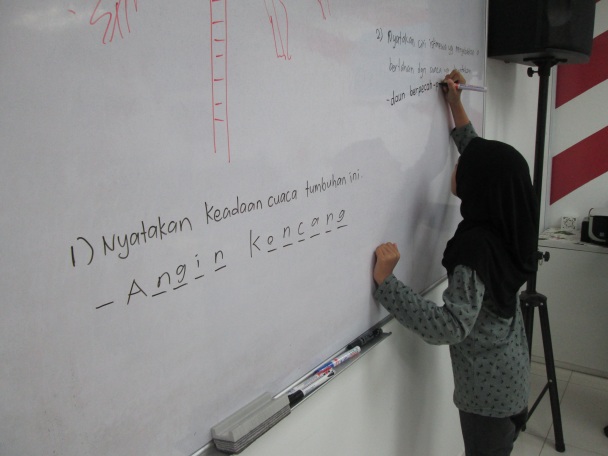 1) Nyatakan keadaan cuaca tumbuhan ini.
- Angin koncang
2) Nyatakan ciri
bertahan dgn cuaca
- daun bersecah -